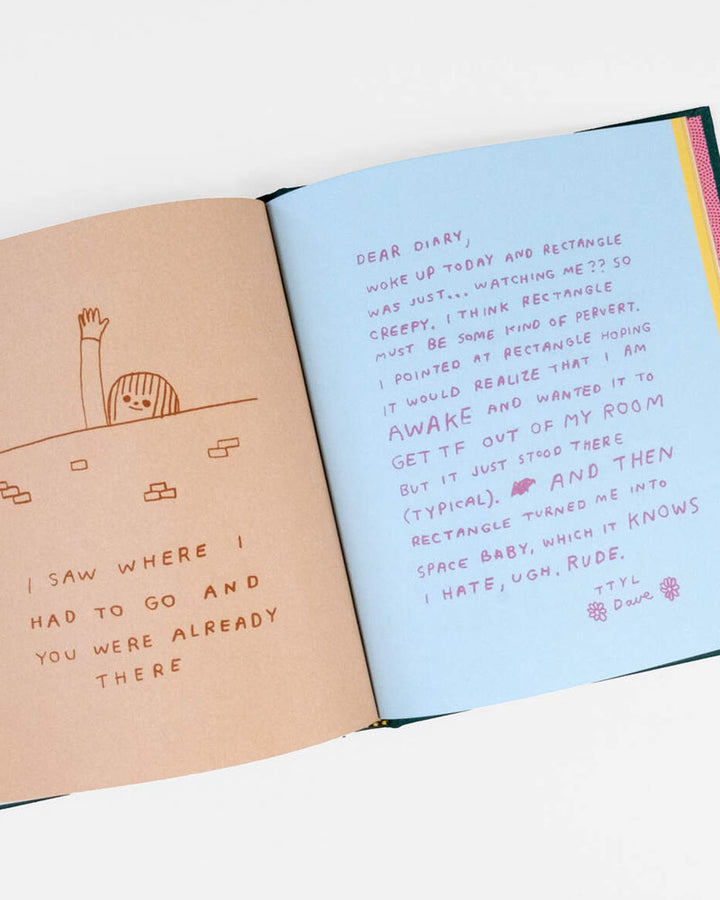 I SAW WHERE I
HAD TO GO AND
YOU WERE ALREADY
THERE
DEAR DIARY,
WOKE UP TODAY AND RECTANGLE
WAS JUST... WATCHING ME?? SO
CREEPY. I THINK RECTANGLE
MUST BE SOME KIND OF PERVERT.
I POINTED AT RECTANGLE HOPING
IT WOULD REALIZE THAT I AM
AWAKE AND WANTED IT TO
GET TF OUT OF MY ROOM
BUT IT JUST STOOD THERE
(TYPICAL). AND THEN
RECTANGLE TURNED ME INTO
SPACE BABY, WHICH IT KNOWS
I HATE, UGH. RUDE.
TTYL
Dave